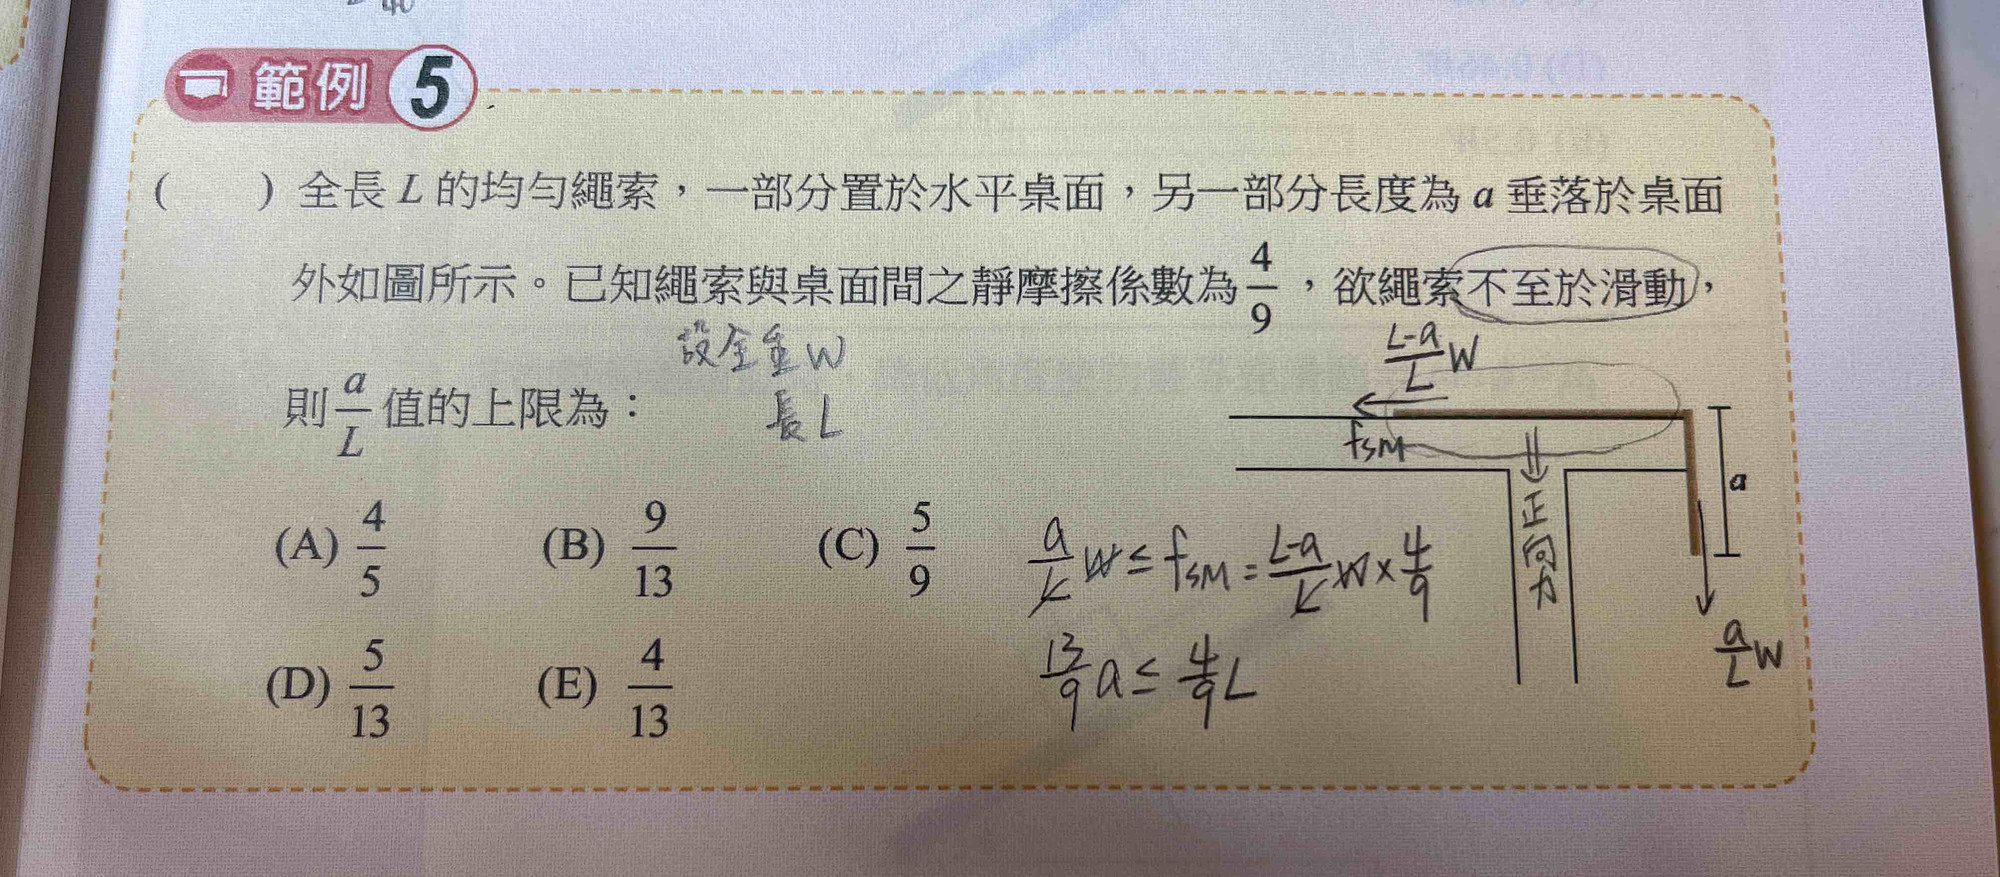 範例 5
( ) 全長 L 的均勻繩索，一部分置於水平桌面，另一部分長度為 a 垂落於桌面
外如圖所示。已知繩索與桌面間之靜摩擦係數為 4/9，欲繩索不至於滑動，
設全重 W
長 L
則 a/L 值的上限為：
(A) 4/5 (B) 9/13 (C) 5/9
(D) 5/13 (E) 4/13
L-a/L W
fsM
正向力
a
a/L W
a/L W ≤ fsM = L-a/L W × 4/9
13/9 a ≤ 4/9 L